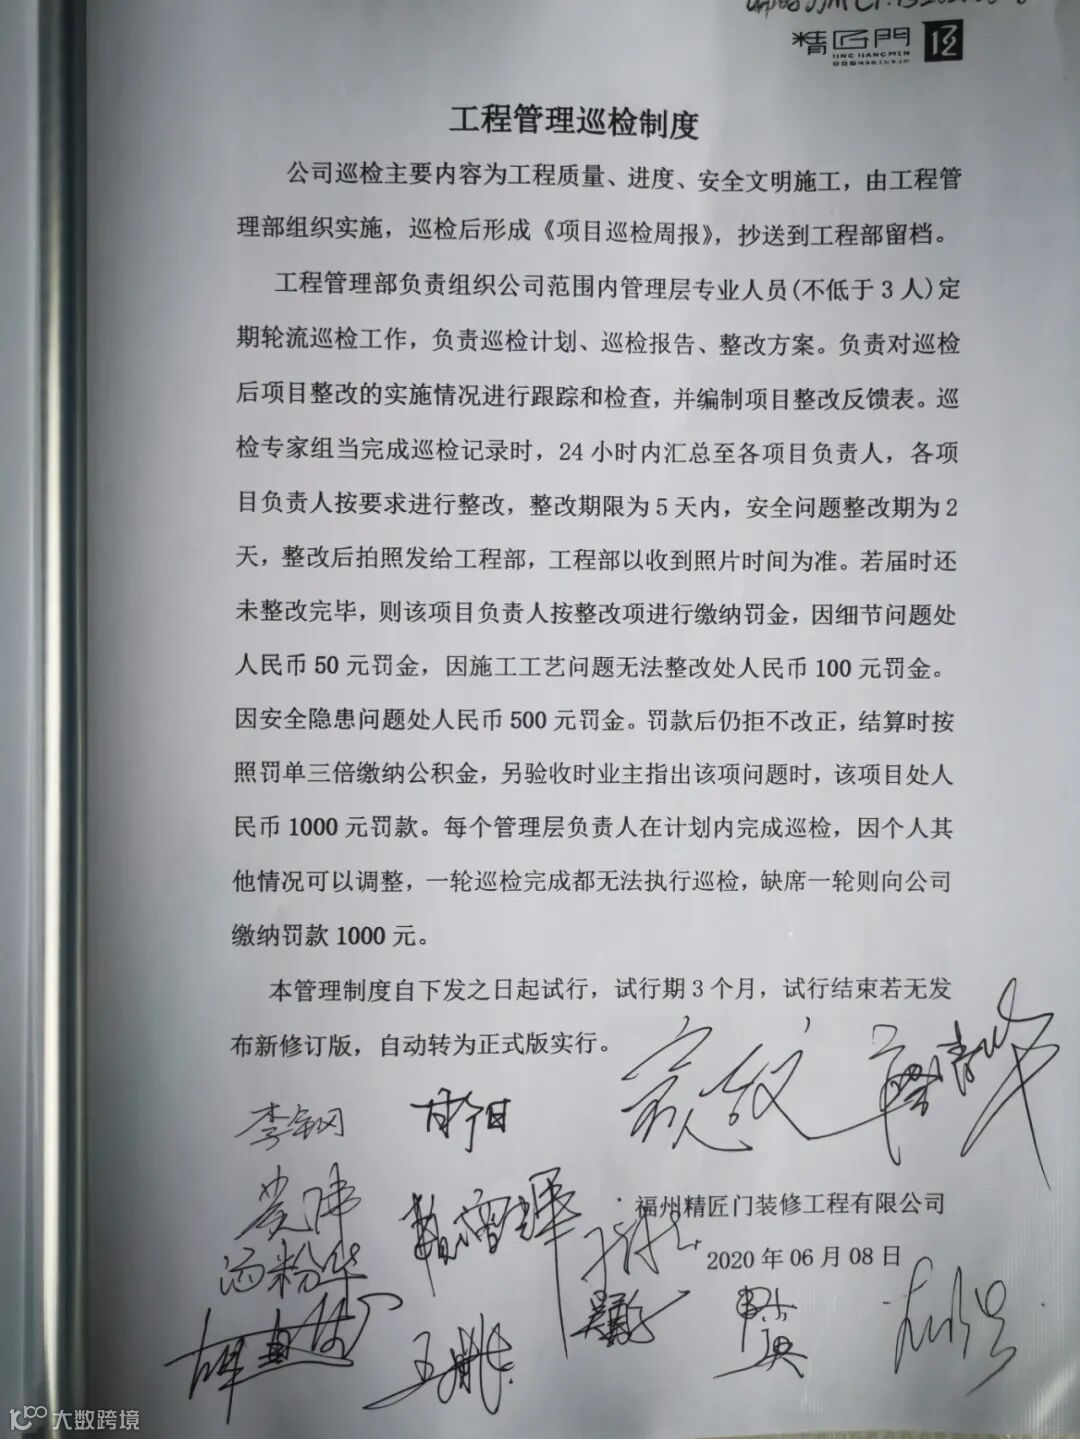 精匠門
JING JIANG MEN
工程管理巡检制度
公司巡检主要内容为工程质量、进度、安全文明施工，由工程管
理部组织实施，巡检后形成《项目巡检周报》，抄送到工程部留档。
工程管理部负责组织公司范围内管理层专业人员(不低于 3 人)定
期轮流巡检工作，负责巡检计划、巡检报告、整改方案。负责对巡检
后项目整改的实施情况进行跟踪和检查，并编制项目整改反馈表。巡
检专家组当完成巡检记录时，24 小时内汇总至各项目负责人，各项
目负责人按要求进行整改，整改期限为 5 天内，安全问题整改期为 2
天，整改后拍照发给工程部，工程部以收到照片时间为准。若届时还
未整改完毕，则该项目负责人按整改项进行缴纳罚金，因细节问题处
人民币 50 元罚金，因施工工艺问题无法整改处人民币 100 元罚金。
因安全隐患问题处人民币 500 元罚金。罚款后仍拒不改正，结算时按
照罚单三倍缴纳公积金，另验收时业主指出该项问题时，该项目处人
民币 1000 元罚款。每个管理层负责人在计划内完成巡检，因个人其
他情况可以调整，一轮巡检完成都无法执行巡检，缺席一轮则向公司
缴纳罚款 1000 元。
本管理制度自下发之日起试行，试行期 3 个月，试行结束若无发
布新修订版，自动转为正式版实行。
黄伟
福州精匠门装修工程有限公司
汤粉华
2020 年 06 月 08 日
王鹏
大数跨境